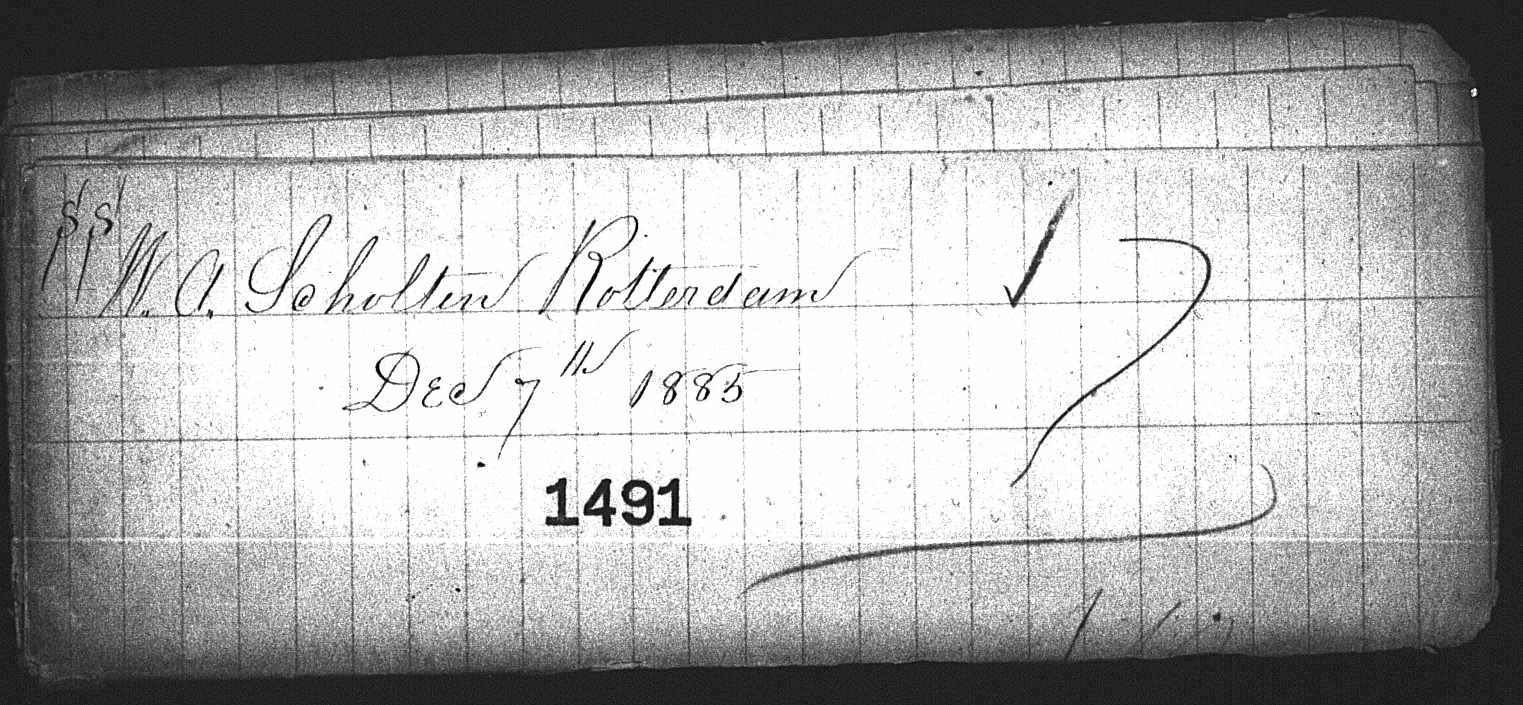 SS W. A. Scholten Rotterdam
Dec 7th 1885
1491